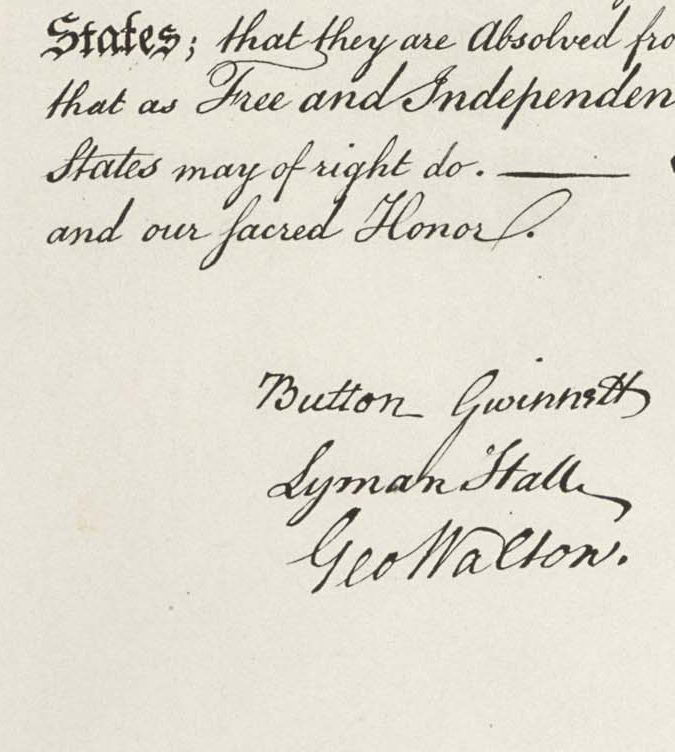 States; that they are Absolved fro
that as Free and Independen
States may of right do. —
and our sacred Honor.
Button Gwinnett
Lyman Hall
Geo Walton.